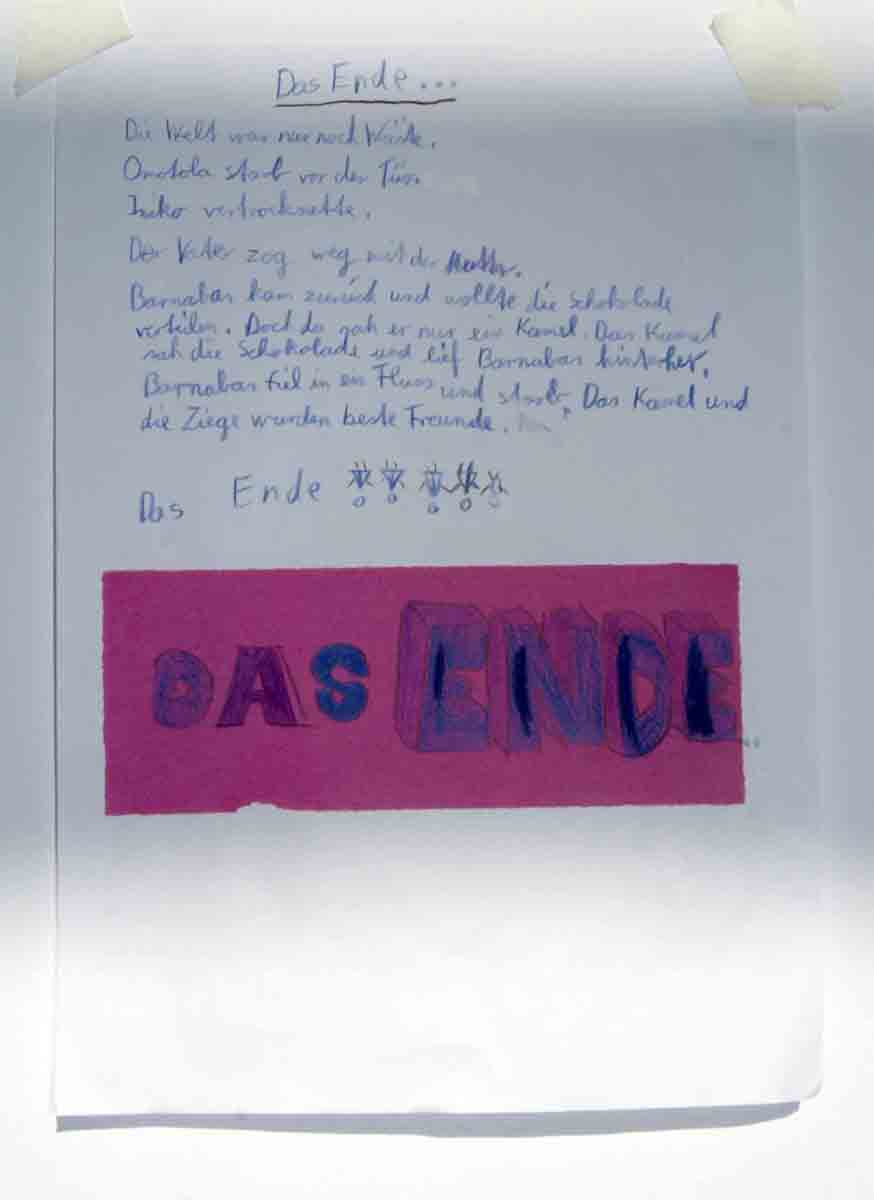 Das Ende...
Die Welt war nur noch Wüste.
Omotola starb vor der Tür.
Iniko vertrocknette.
Der Vater zog weg mit der Mutter.
Barnabas kam zurück und wollte die Schokolade
verteilen. Doch da sah er nur ein Kamel. Das Kamel
sah die Schokolade und lief Barnabas hinterher.
Barnabas fiel in ein Fluss und starb. Das Kamel und
die Ziege wurden beste Freunde.
Das Ende
DAS ENDE...